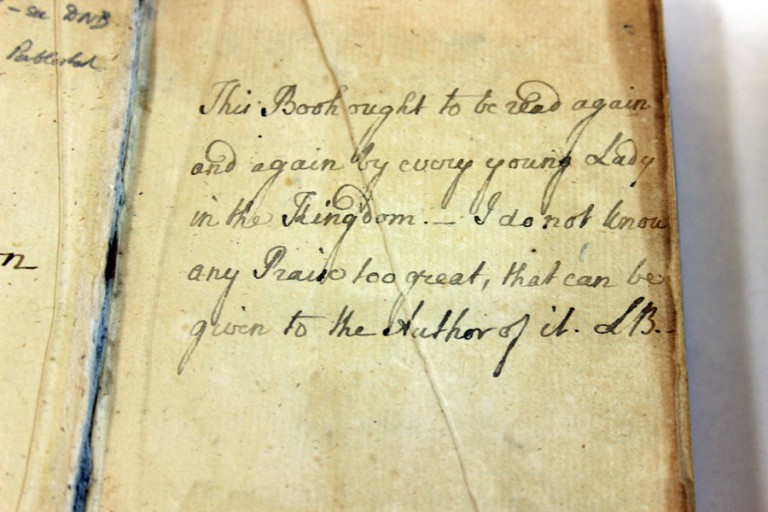 - see DNB
Published
n
This Book ought to be read again
and again by every young Lady
in the Kingdom. — I do not know
any Praise too great, that can be
given to the Author of it. LB.